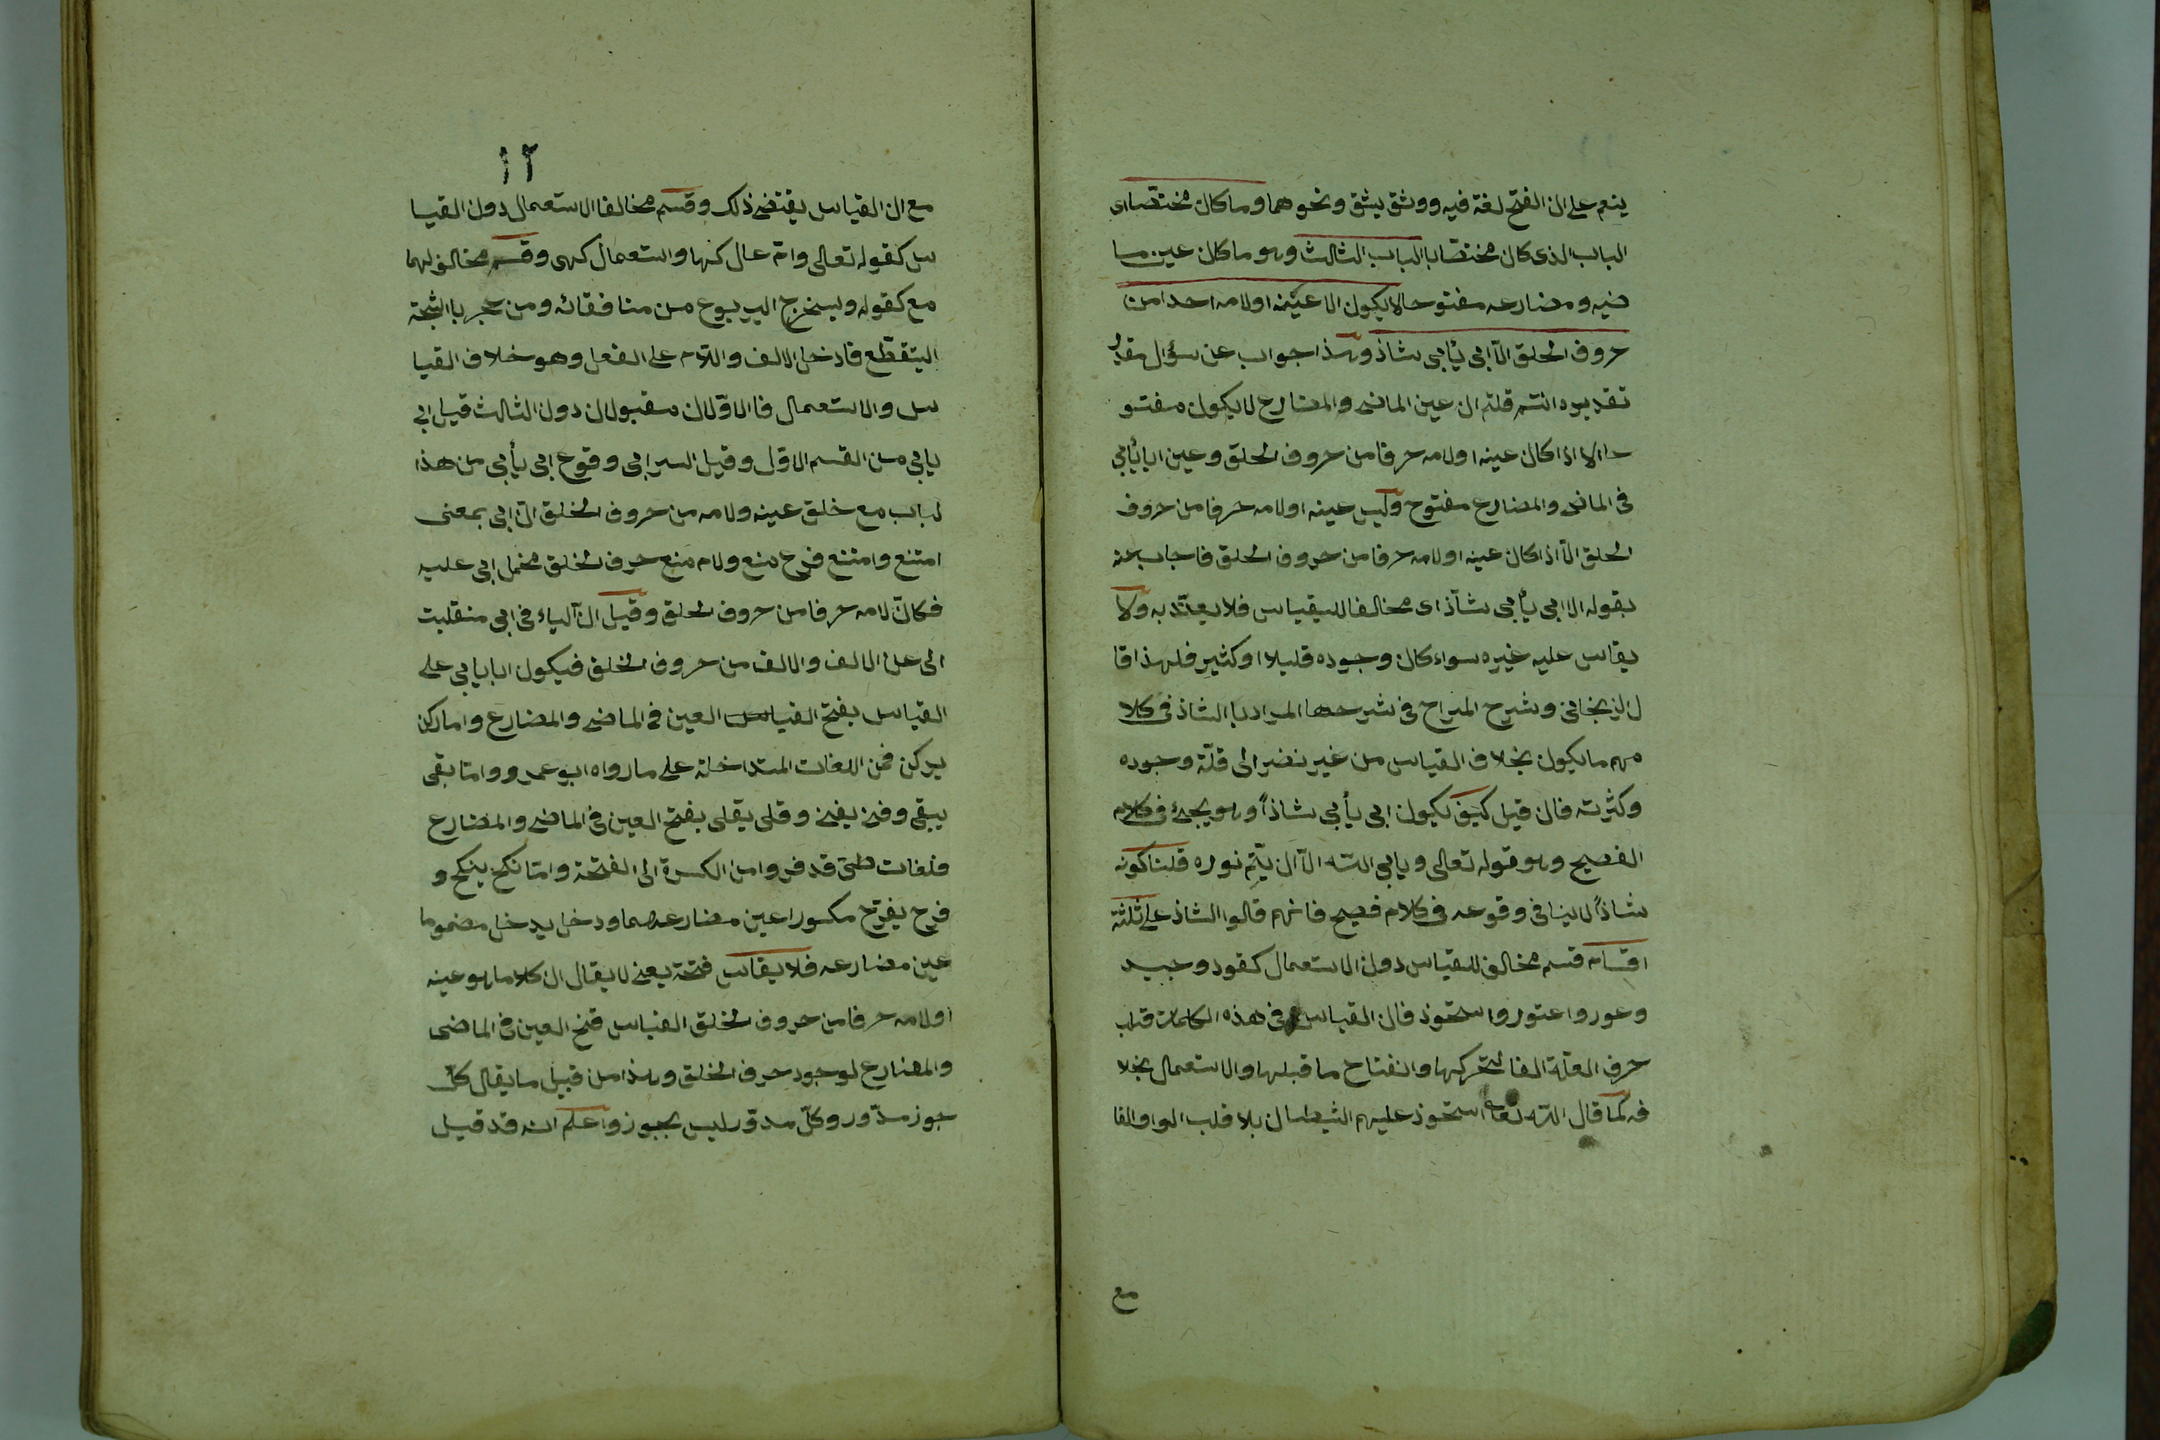 ينعم على ان الفتح لغة فيه ووثق يثق ونحوهما وما كان مختصا اى
الباب الذى كان مختصا بالباب الثالث وهو ما كان عين ما
ضيه ومضارعه مفتوحا لا يكون الا عينه او لامه احدا من
حروف الحلق الّا ابى يأبى شاذ وهذا جواب عن سؤال مقدر
تقديره انتم قلتم ان عين الماضى والمضارع لا يكون مفتو
حا الا اذا كان عينه او لامه حرفا من حروف الحلق وعين ابا يأبى
فى الماضى والمضارع مفتوح وليس عينه او لامه حرفا من حروف
الحلق الّا اذا كان عينه او لامه حرفا من حروف الحلق فاجاب عنه
بقوله الا ابى يأبى شآذ اى مخالفا للقياس فلا يعتد به ولا
يقاس عليه غيره سواء كان وجوده قليلا او كثير فلهذا قا
ل الزنجانى وشرح المراح فى شرحها المراد بالشاذ فى كلا
مهم ما يكون بخلاف القياس من غير نضر الى قلّة وجوده
وكثرته فان قيل كيف يكون ابى يأبى شاذاً وهو يجئ فى كلام
الفصيح وهو قوله تعالى ويابى الله الّا ان يتّم نوره قلنا كونه
شاذاً لا ينافى وقوعه فى كلام فصيح فانهم قالوا الشاذ على ثلثة
اقسام قسم مخالف للقياس دون الاستعمال كقود وجيد
وعور واعتور واستحوذ فان القياس فى هذه الكلمات قلب
حرف العلة الفا لتحركها وانفتاح ما قبلها والاستعمال بخلا
فه كما قال الله تعا استحوذ عليهم الشيطان بلا قلب الواو الفا
مع
١٢
مع ان القياس يقتضى ذلك وقسم مخالف الاستعمال دون القيا
س كقوله تعالى وام عال كها واستعمال كهى وقسم مخالف لهما
مع كقوله ويستخرج اليربوع من منافقائه ومن حجر بالشيحة
اليتقطع فادخل الالف واللام على الفعل وهو خلاف القيا
س والاستعمال فالاوّلان مقبولان دون الثالث قيل ابى
يابى من القسم الاوّل وقيل السر ابى وقوع ابى يأبى من هذا
لباب مع خلق عينه ولامه من حروف الخلق انّ ابى بمعنى
امتنع وامتنع فرع منع ولام منع حرف الخلق محمل ابى عليه
فكانّ لامه حرفا من حروف الحلق وقيل انّ الياء فى ابى منقلبت
الى على الالف والالف من حروف الخلق فيكون ابا يابى على
القياس بفتح القياس العين فى الماضى والمضارع واما ركن
يركن فمن اللغات المتداخلة على ما رواه ابو عمرو واما بقى
يبقى وفنى يفنى وقلى يقلى بفتح العين فى الماضى والمضارع
فلغات طىّ قد فروا من الكسرة الى الفتحة وامّا نكح ينكح و
فرح يفرّح مكسورا عين مضارعهما ودخل يدخل مضموما
عين مضارعه فلا يقاس فتحة يعنى لا يقال ان كلا ما هو عينه
او لامه حرفا من حروف الخلق القياس فتح العين فى الماضى
والمضارع لوجود حرف الخلق وهذا من قبيل ما يقال كلّ
جوز مدّور وكلّ مدوّر ليس بجوز واعلم انه قد قيل